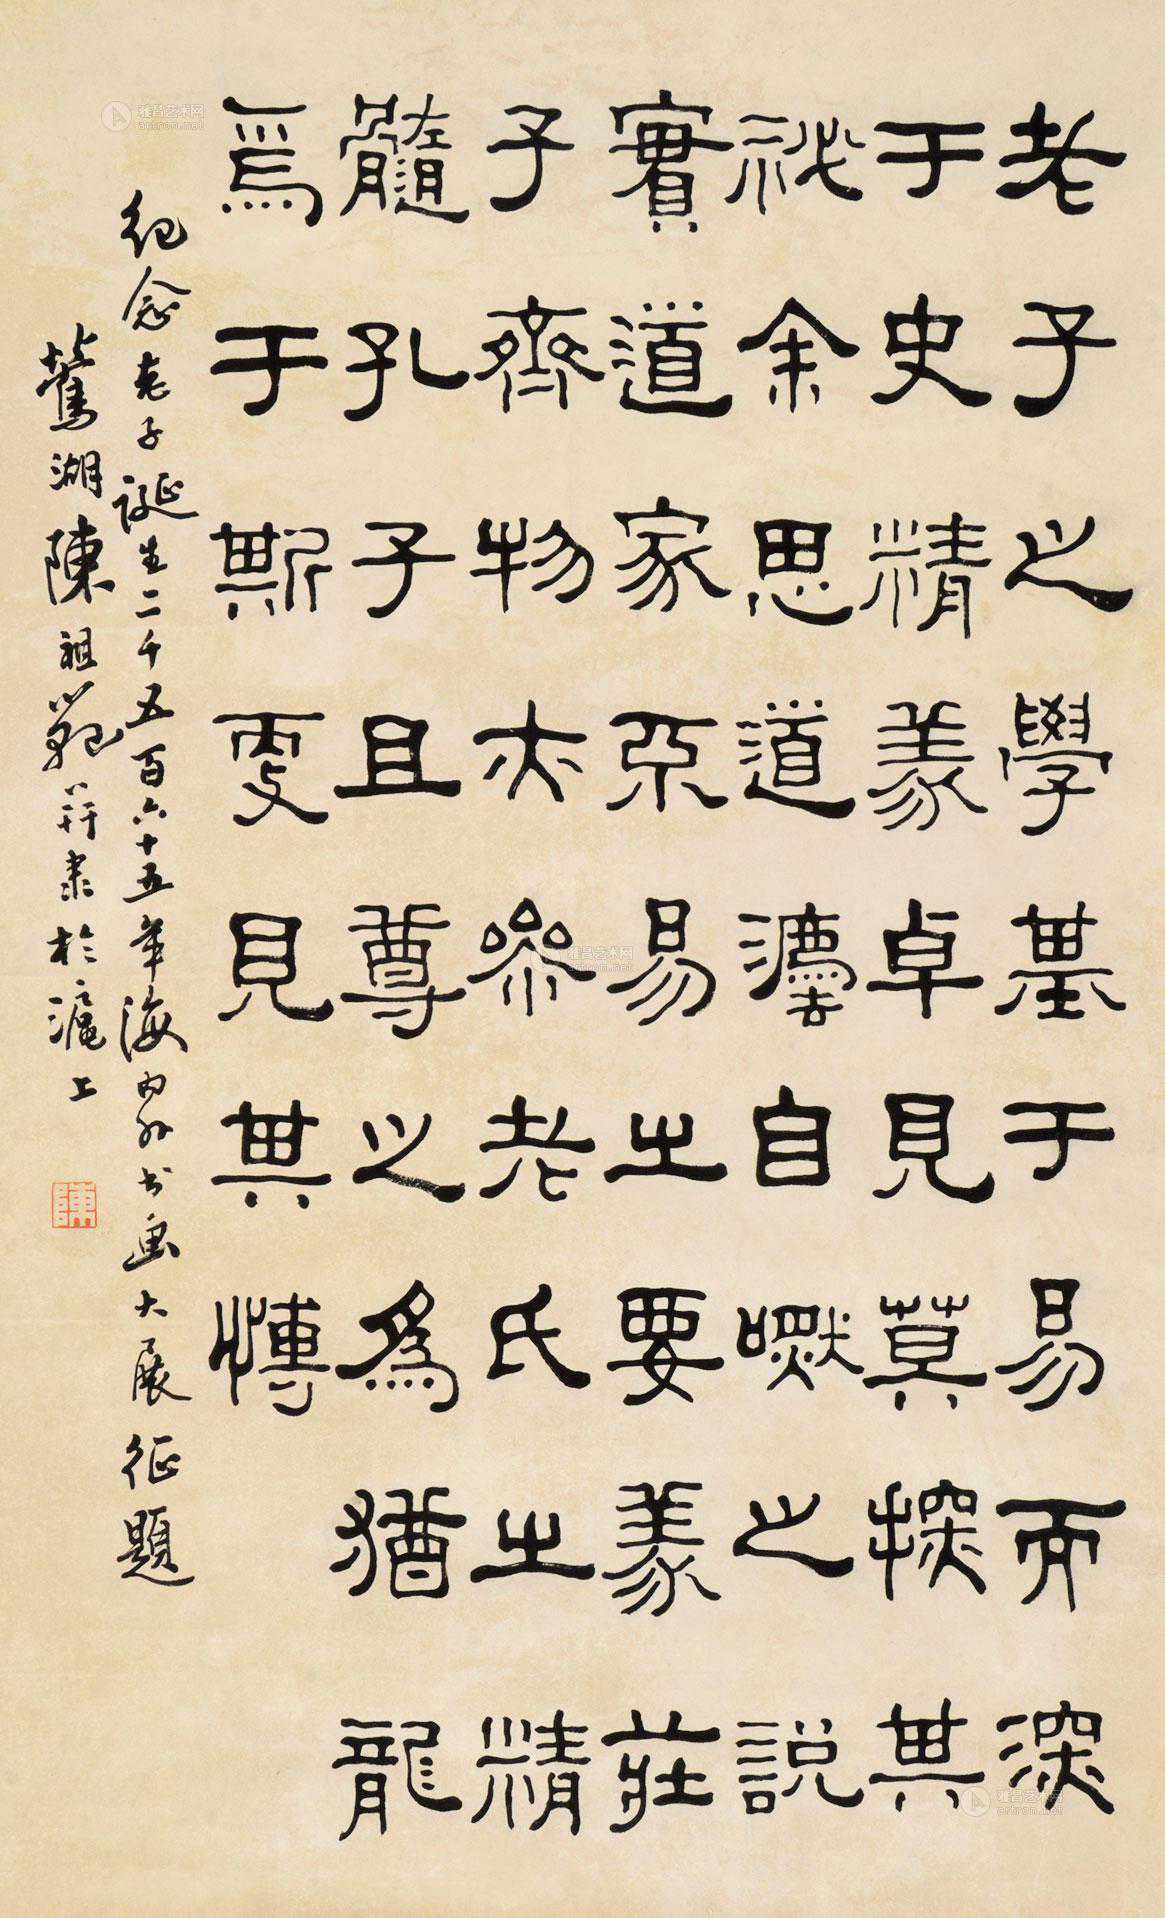 老子之學基于易而深
于史精義卓見莫探其
祕余思道灋自嘿之說
實道家承易之要義莊
子齊物亦參老氏之精
髓孔子且尊之為猶龍
焉于斯更見其博
紀念老子誕生二千五百六十五年海內外书画大展征題
鶯湖陳祖範并隸於滬上
陳
雅昌艺术网
artron.net